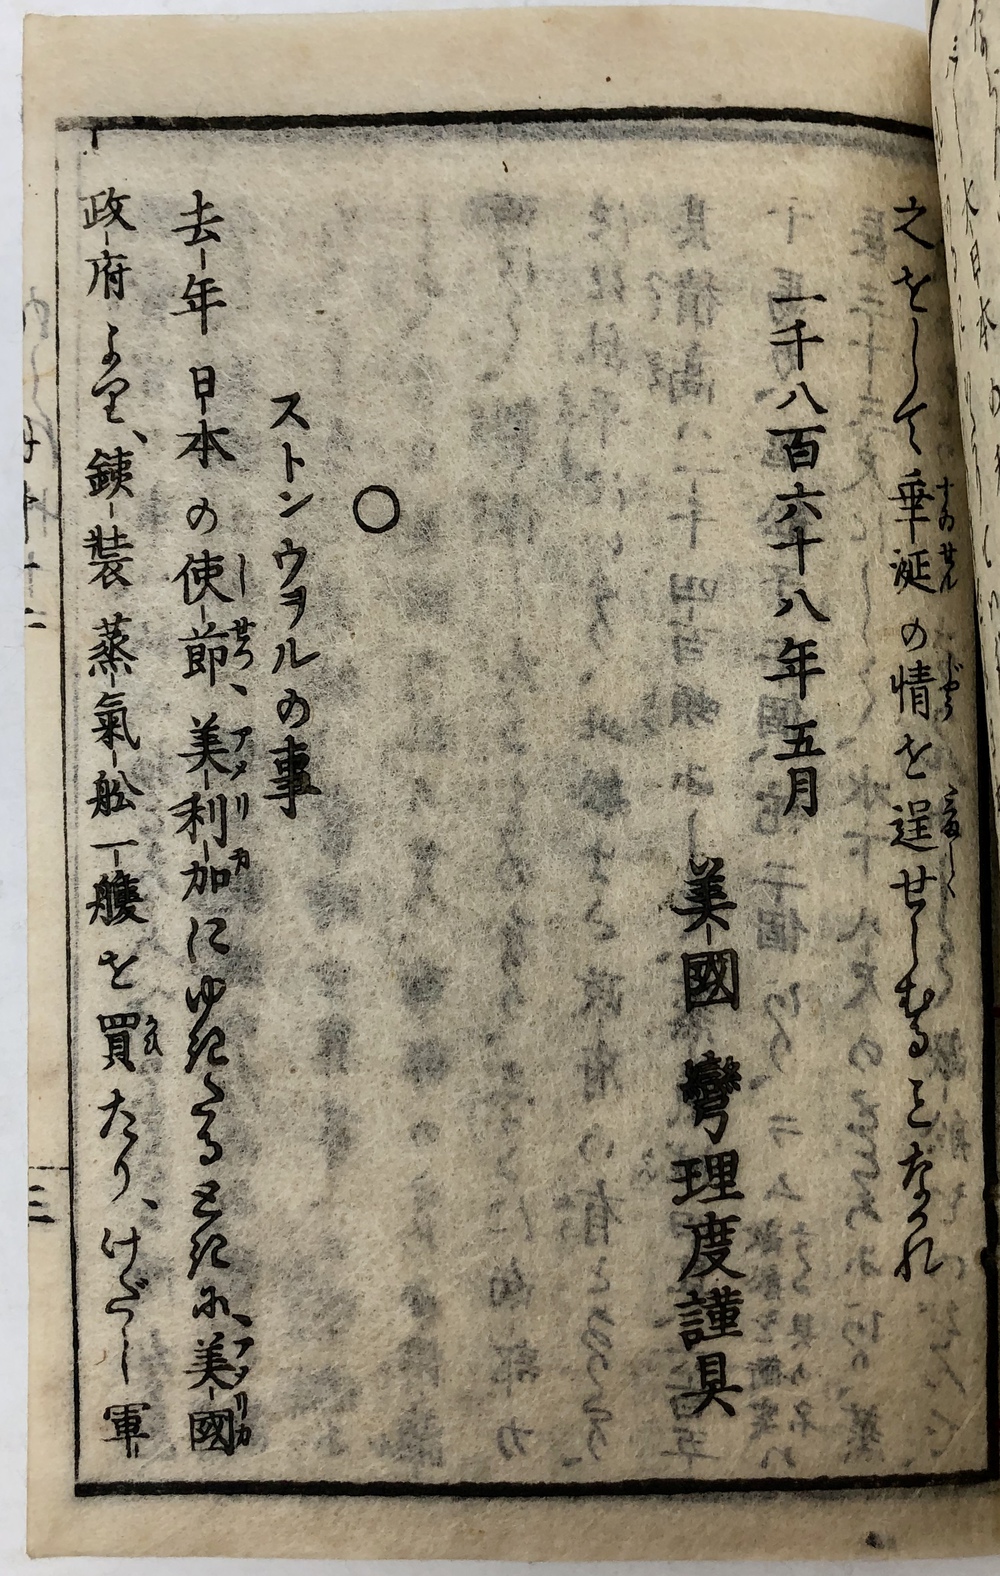 之をして垂涎の情を逞せしむることなかれ
一千八百六十八年五月
美國 彎理度謹具
○
ストンウヲルの事
去年日本の使節、美利加にゆきたるときに、美國
政府より、銕裝蒸氣船一艘を買たり、けだし軍
三